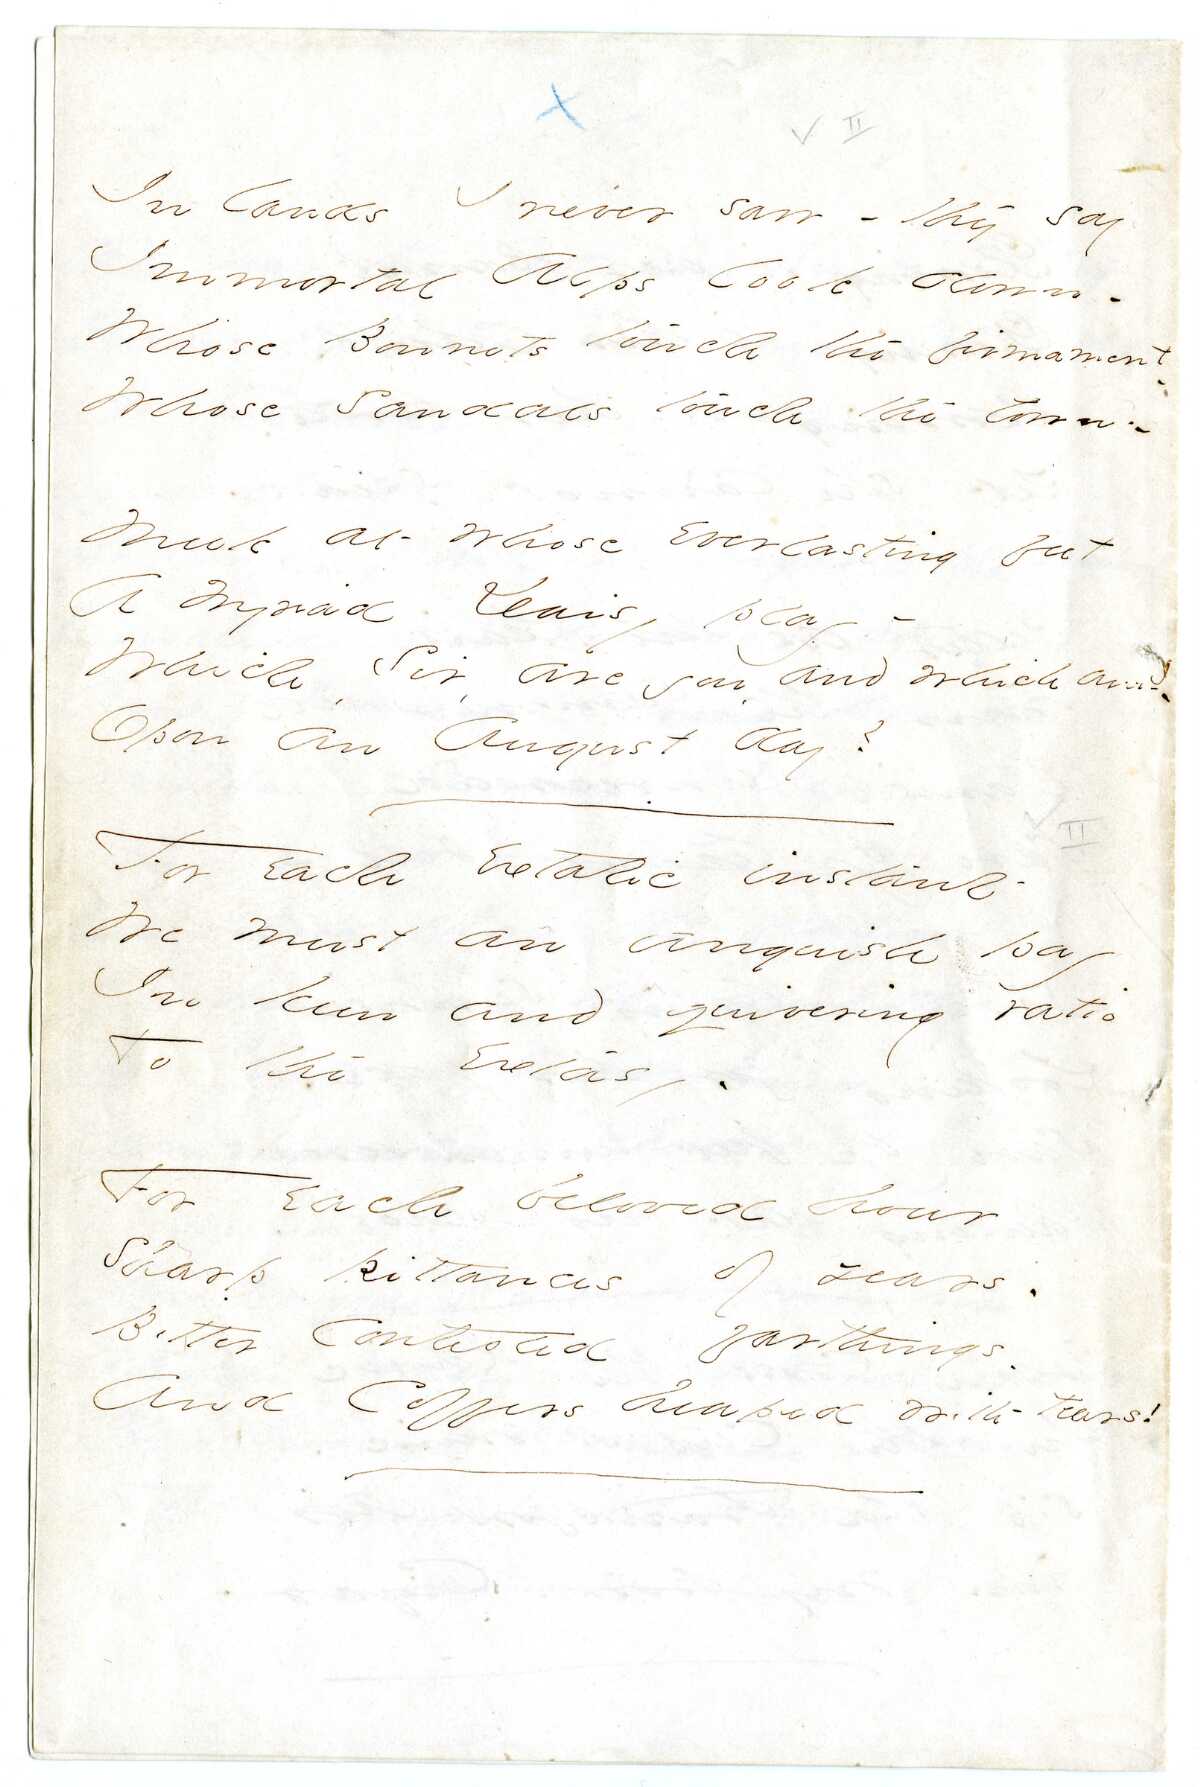 X
✓ II
In lands I never saw - they say
Immortal Alps look down -
Whose Bonnets touch the firmament -
Whose Sandals touch the town -
Meek at whose Everlasting feet
A Myriad Daisy play -
Which, Sir, are you, and which am I -
Opon an August day?
✓ II
For Each Extatic instant
We must an anguish pay
In keen and quivering ratio
To the Extasy.
For Each beloved hour
Sharp pittances of years.
Bitter Contested farthings.
And Coffers heaped with tears!